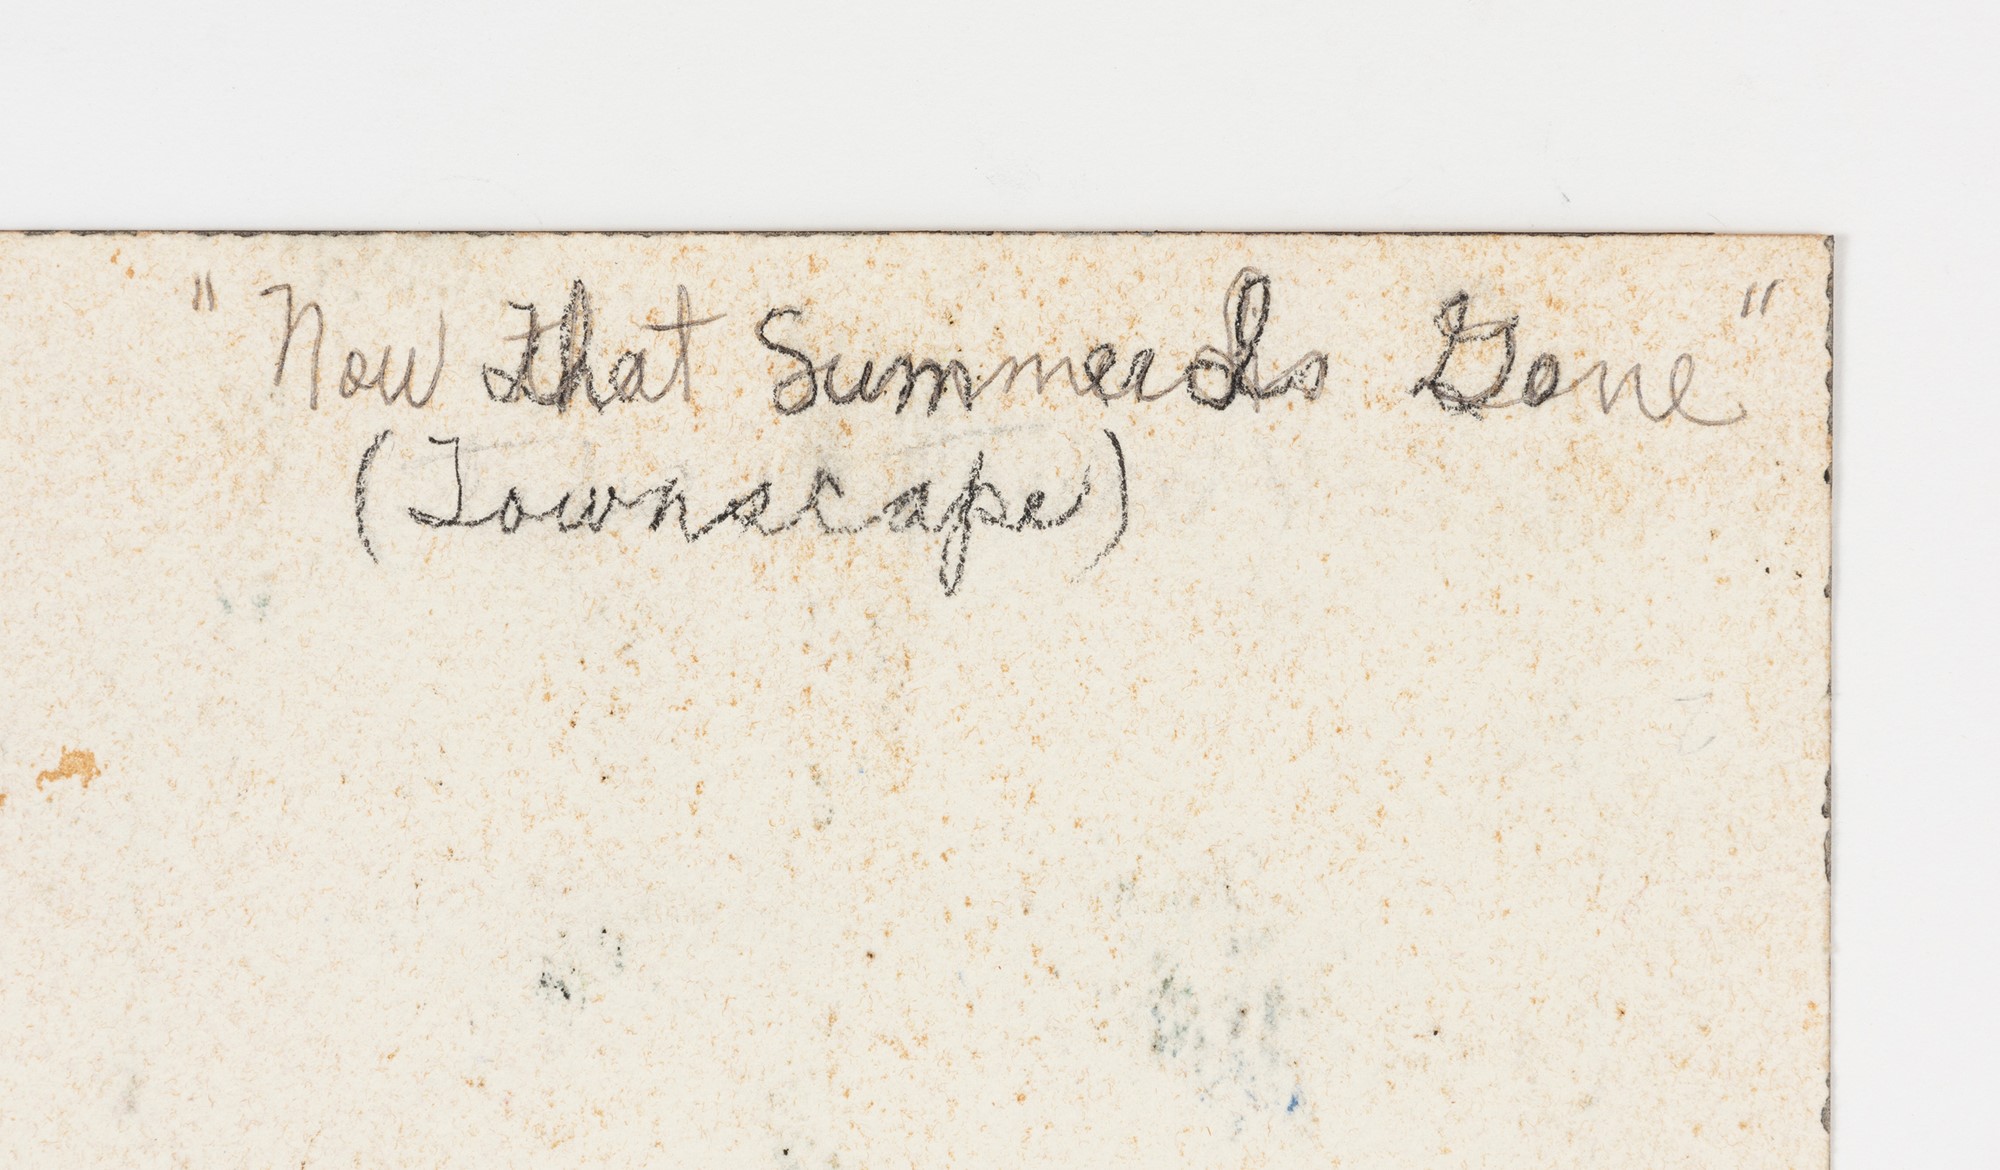 "Now that Summer Is Gone"
(Townscape)